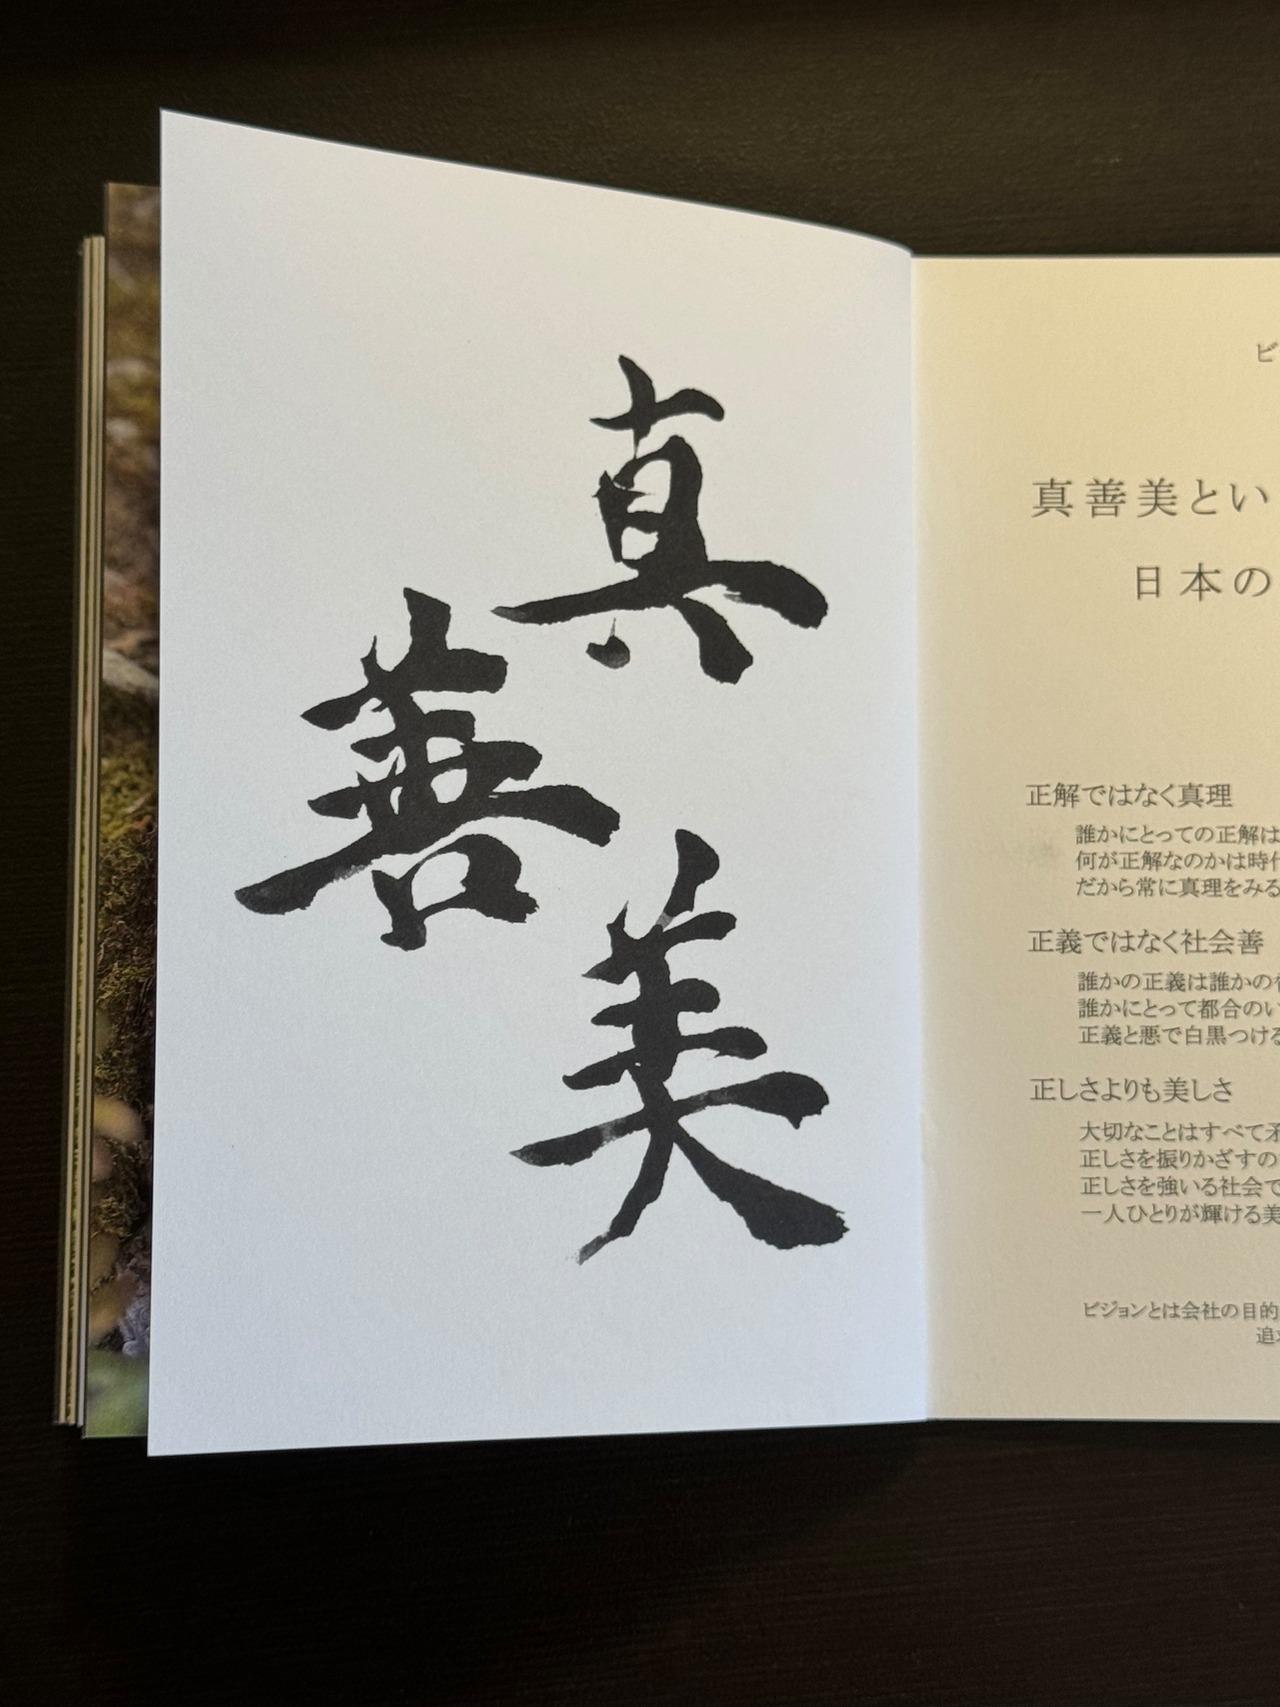 真
善
美
ビ
真善美とい
日本の
正解ではなく真理
誰かにとっての正解は
何が正解なのかは時代
だから常に真理をみる
正義ではなく社会善
誰かの正義は誰かの
誰かにとって都合のい
正義と悪で白黒つける
正しさよりも美しさ
大切なことはすべて矛
正しさを振りかざすの
正しさを強いる社会で
一人ひとりが輝ける美
ビジョンとは会社の目的
追求